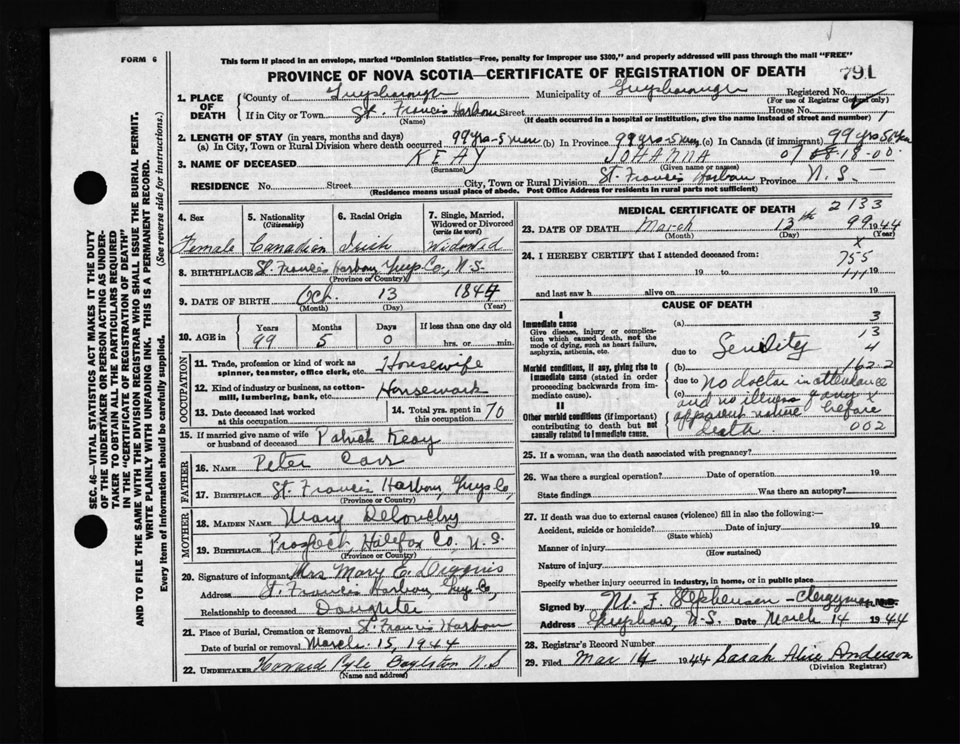 FORM 6
This form if placed in an envelope, marked "Dominion Statistics—Free, penalty for improper use $300," and properly addressed will pass through the mail "FREE"
PROVINCE OF NOVA SCOTIA—CERTIFICATE OF REGISTRATION OF DEATH 791
1. PLACE OF DEATH
County of Guysborough Municipality of Guysborough Registered No.
(For use of Registrar General only)
If in City or Town St. Francis Harbour Street House No.
(Name) (If death occurred in a hospital or institution, give the name instead of street and number)
2. LENGTH OF STAY (in years, months and days)
(a) In City, Town or Rural Division where death occurred 99 yrs-5 mon (b) In Province 99 yrs-5 mon (c) In Canada (if immigrant) 99 yrs
3. NAME OF DECEASED KEAY JOHANNA
(Surname) (Given name or names)
RESIDENCE No. Street City, Town or Rural Division St. Francis Harbour Province N. S.
(Residence means usual place of abode. Post Office Address for residents in rural parts not sufficient)
4. Sex Female
5. Nationality (Citizenship) Canadian
6. Racial Origin Irish
7. Single, Married, Widowed or Divorced (write the word) Widowed
8. BIRTHPLACE St. Francis Harbour, Guys. Co., N. S.
(Province or Country)
9. DATE OF BIRTH Oct. 13 1844
(Month) (Day) (Year)
10. AGE in Years 99 Months 5 Days 0 If less than one day old hrs. or min.
OCCUPATION
11. Trade, profession or kind of work as spinner, teamster, office clerk, etc. Housewife
12. Kind of industry or business, as cotton-mill, lumbering, bank, etc. Housework
13. Date deceased last worked at this occupation
14. Total yrs. spent in this occupation 70
15. If married give name of wife or husband of deceased Patrick Keay
FATHER
16. NAME Peter
17. BIRTHPLACE St. Francis Harbour, Guys Co,
(Province or Country)
MOTHER
18. MAIDEN NAME Mary
19. BIRTHPLACE Prospect, Halifax Co, N. S.
(Province or Country)
20. Signature of informant Mrs Mary E.
Address St. Francis Harbour, Guys Co,
Relationship to deceased Daughter
21. Place of Burial, Cremation or Removal St. Francis Harbour
Date of burial or removal March 15, 1944
22. UNDERTAKER Howard Pyle Boylston N. S
(Name and address)
MEDICAL CERTIFICATE OF DEATH 2133
23. DATE OF DEATH March 13th 1944
(Month) (Day) (Year)
99
24. I HEREBY CERTIFY that I attended deceased from: 755
19 to 19
and last saw h alive on 19
CAUSE OF DEATH
I
Immediate cause
Give disease, injury or complication which caused death, not the mode of dying, such as heart failure, asphyxia, asthenia, etc.
(a) 3
13
due to Senility 4
Morbid conditions, if any, giving rise to immediate cause (stated in order proceeding backwards from immediate cause).
(b) 162-2
due to No doctor in attendance
(c) and no illness of any
II
Other morbid conditions (if important) contributing to death but not causally related to immediate cause.
apparent nature before
death. 002
25. If a woman, was the death associated with pregnancy?
26. Was there a surgical operation? Date of operation 19
State findings Was there an autopsy?
27. If death was due to external causes (violence) fill in also the following:—
Accident, suicide or homicide? Date of injury 19
(State which)
Manner of injury
(How sustained)
Nature of injury
Specify whether injury occurred in industry, in home, or in public place
Signed by M. F. Stephenson - Clergyman M.D.
Address Guysboro, N.S. Date March 14 1944
28. Registrar's Record Number
29. Filed Mar 14 1944 Sarah Alice Anderson
(Division Registrar)
SEC. 46—VITAL STATISTICS ACT MAKES IT THE DUTY
OF THE UNDERTAKER OR PERSON ACTING AS UNDER-
TAKER TO OBTAIN ALL THE PARTICULARS REQUIRED
IN THE "CERTIFICATE OF REGISTRATION OF DEATH"
AND TO FILE THE SAME WITH THE DIVISION REGISTRAR WHO SHALL ISSUE THE BURIAL PERMIT.
WRITE PLAINLY WITH UNFADING INK. THIS IS A PERMANENT RECORD.
Every item of information should be carefully supplied. (See reverse side for instructions.)